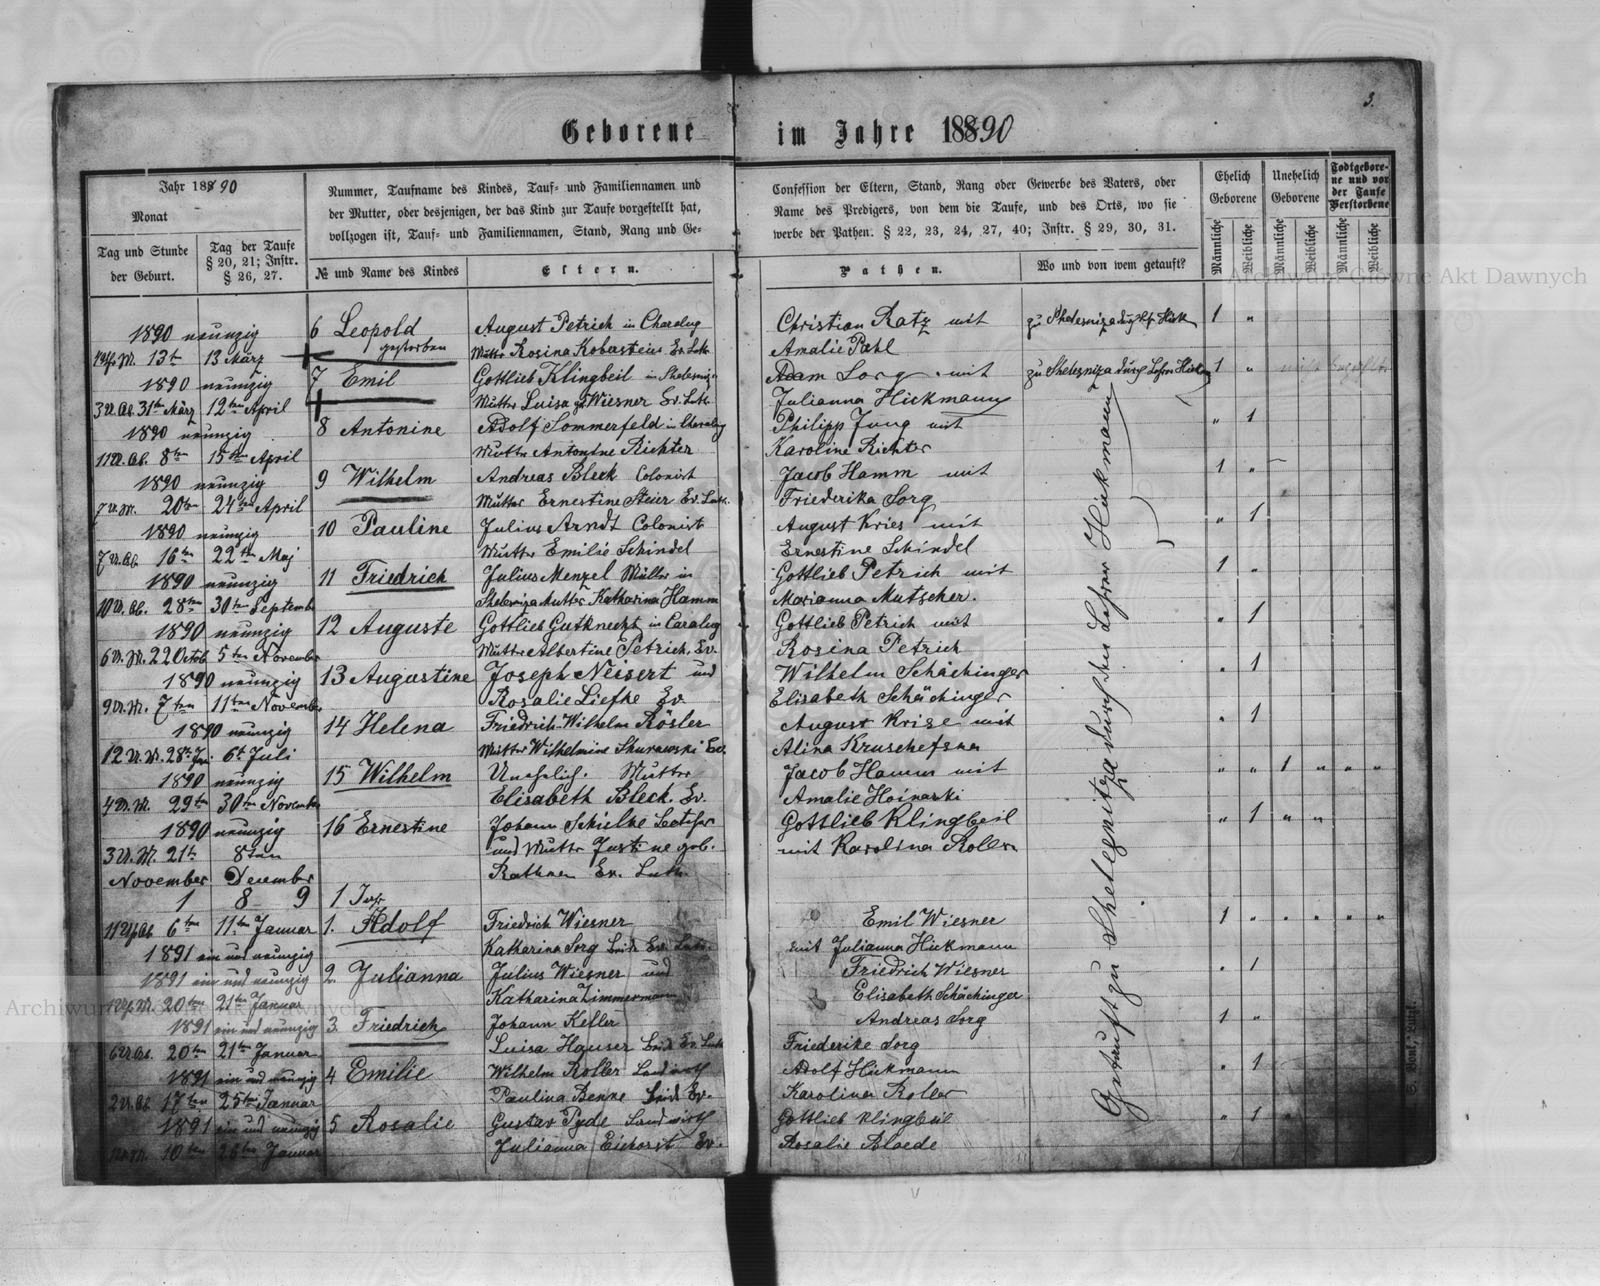 3.
Geborene im Jahre 18890
Jahr 18890
Monat
Tag und Stunde der Geburt.
Tag der Taufe § 20, 21; Instr. § 26, 27.
Nummer, Taufname des Kindes, Tauf- und Familiennamen und
der Mutter, oder desjenigen, der das Kind zur Taufe vorgestellt hat,
vollzogen ist, Tauf- und Familiennamen, Stand, Rang und Ge-
№ und Name des Kindes
Eltern.
Confession der Eltern, Stand, Rang oder Gewerbe des Vaters, oder
Name des Predigers, von dem die Taufe, und des Orts, wo sie
werbe der Pathen. § 22, 23, 24, 27, 40; Instr. § 29, 30, 31.
Pathen.
Wo und von wem getauft?
Ehelich Geborene
Unehelich Geborene
Todtgebore-
ne und vor
der Taufe
Verstorbene
Männliche
Weibliche
Männliche
Weibliche
Männliche
Weibliche
1890 neunzig 6 Leopold August Petrich in Christian Ratz mit 1 "
gestorben
13t 13 März Mutter Rosina Ev. Luth. Amalie Pahl
1890 neunzig 7 Emil Gottlieb Klingbeil in Adam Sorg mit 1 "
3 U. Ab. 31te März 12ten April Mutter Luisa Wiesner Ev. Luth. Julianna Hickmann
1890 neunzig 8 Antonine Adolf Sommerfeld in Philipp Jung mit " 1
11 U. Ab. 8ten 15ten April Mutter Antonine Richter Karoline Richter
1890 neunzig 9 Wilhelm Andreas Bleck Colonist Jacob Hamm mit 1 "
7 U. M. 20ten 24ten April Mutter Ernestine Steier Ev. Luth. Friederika Sorg
1890 neunzig 10 Pauline Julius Arndt Colonist August Kries mit " 1
7 U. Ab. 16ten 22ten Maj Mutter Emilie Schindel Ernestine Schindel
1890 neunzig 11 Friedrich Julius Menzel Müller in Gottlieb Petrich mit 1 "
10 U. Ab. 28ten 30ten Septembe Mutter Katharina Hamm Marianna Mutscher.
1890 neunzig 12 Auguste Gottlieb Gutknecht in Gottlieb Petrich mit " 1
6 U. M. 22 Octob 5ten November Mutter Albertine Petrich. Ev. Rosina Petrich
1890 neunzig 13 Augustine Joseph Neisert und Wilhelm Schächinger " 1
9 U. M. 7ten 11ten November Rosalie Liefke Ev Elisabeth Schächinger
1890 neunzig 14 Helena Friedrich Wilhelm Rösler August Krise mit " 1
12 U. M. 6t Juli Mutter Wilhelmine Ev. Alina
1890 neunzig 15 Wilhelm Unehelich. Mutter Jacob Hamm mit " " 1 " " "
4 U. M. 29ten 30ten November Elisabeth Bleck. Ev. Amalie Hoinaski
1890 neunzig 16 Ernestine Johann Schielke Gottlieb Klingbeil " 1 " "
3 U. M. 21te 8ten und Mutter Justine geb. mit Karolina Roller
November December Ev. Luth.
1 8 9 1
11 6ten 11ten Januar 1. Adolf Friedrich Wiesner Emil Wiesner 1 " " " " "
1891 ein und neunzig Katharina Sorg beide Ev. Luth. mit Julianna Hickmann
1891 ein und neunzig 2. Julianna Julius Wiesner und Friedrich Wiesner " 1
20ten 21ten Januar Katharina Zimmermann Elisabeth Schächinger
1891 ein und neunzig 3. Friedrich Johann Keller Andreas Sorg 1 "
6 U. Ab. 20ten 21ten Januar Luisa Hauser beide Ev. Luth Friederike Sorg
1891 ein und neunzig 4 Emilie Wilhelm Roller Landwirth Adolf Hickmann " 1
2 U. Ab. 17ten 25ten Januar Paulina Benke beide Ev. Karolina Roller
1891 ein und neunzig 5 Rosalie Gustav Pyde Landwirth Gottlieb Klingbeil " 1
10ten 26ten Januar Julianna Eichorst Ev. Rosalie
Getauft zu durch den Lehrer Hickmann
Archiwum Główne Akt Dawnych
Archiwum Główne Akt Dawnych